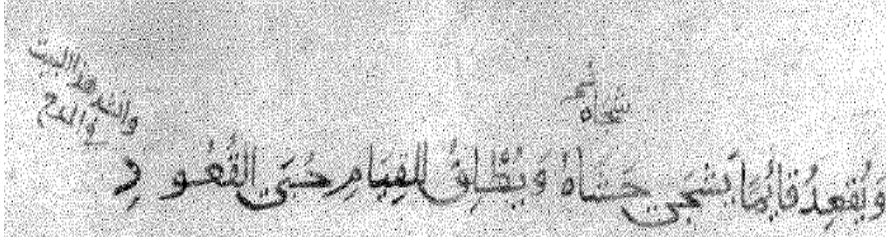 وانشد هذا البيت
في المدح
شجاه
وَيُقعِدُ قايُمًا يشجى حَشَاهُ وَيُطْلِقُ للقِيَامِ حُبَى القُعُودِ